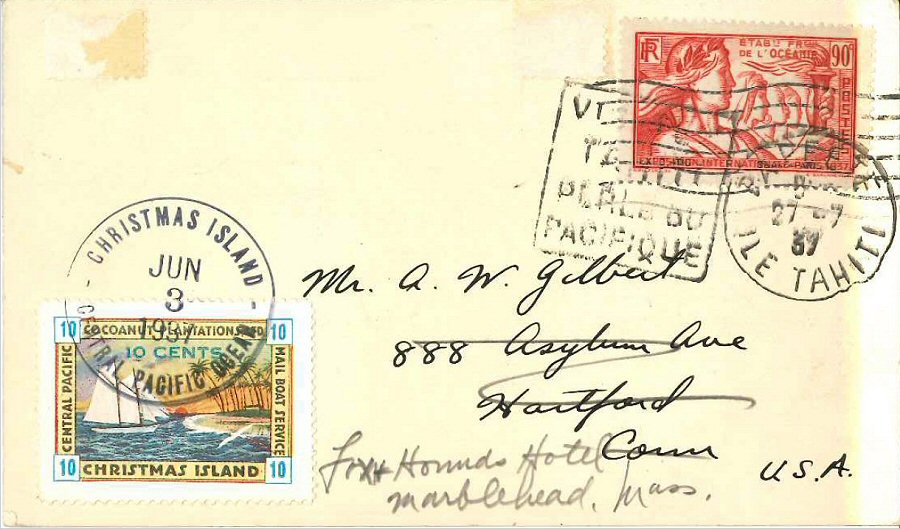 RF
ÉTABts FRçs
DE L'OCÉANIE
90c
POSTES
EXPOSITION INTERNATIONALE PARIS 1937
TAHITI
PERLE DU
PACIFIQUE
PAPEETE
27
37
ILE TAHITI
- CHRISTMAS ISLAND -
JUN
3
1937
CENTRAL PACIFIC OCEAN
10 COCOANUT PLANTATIONS LTD 10
10 CENTS
CENTRAL PACIFIC
MAIL BOAT SERVICE
10 CHRISTMAS ISLAND 10
Mr. A. W. Gilbert
888 Asylum Ave
Hartford
Conn
U.S.A.
Fox + Hounds Hotel
Marblehead, Mass.